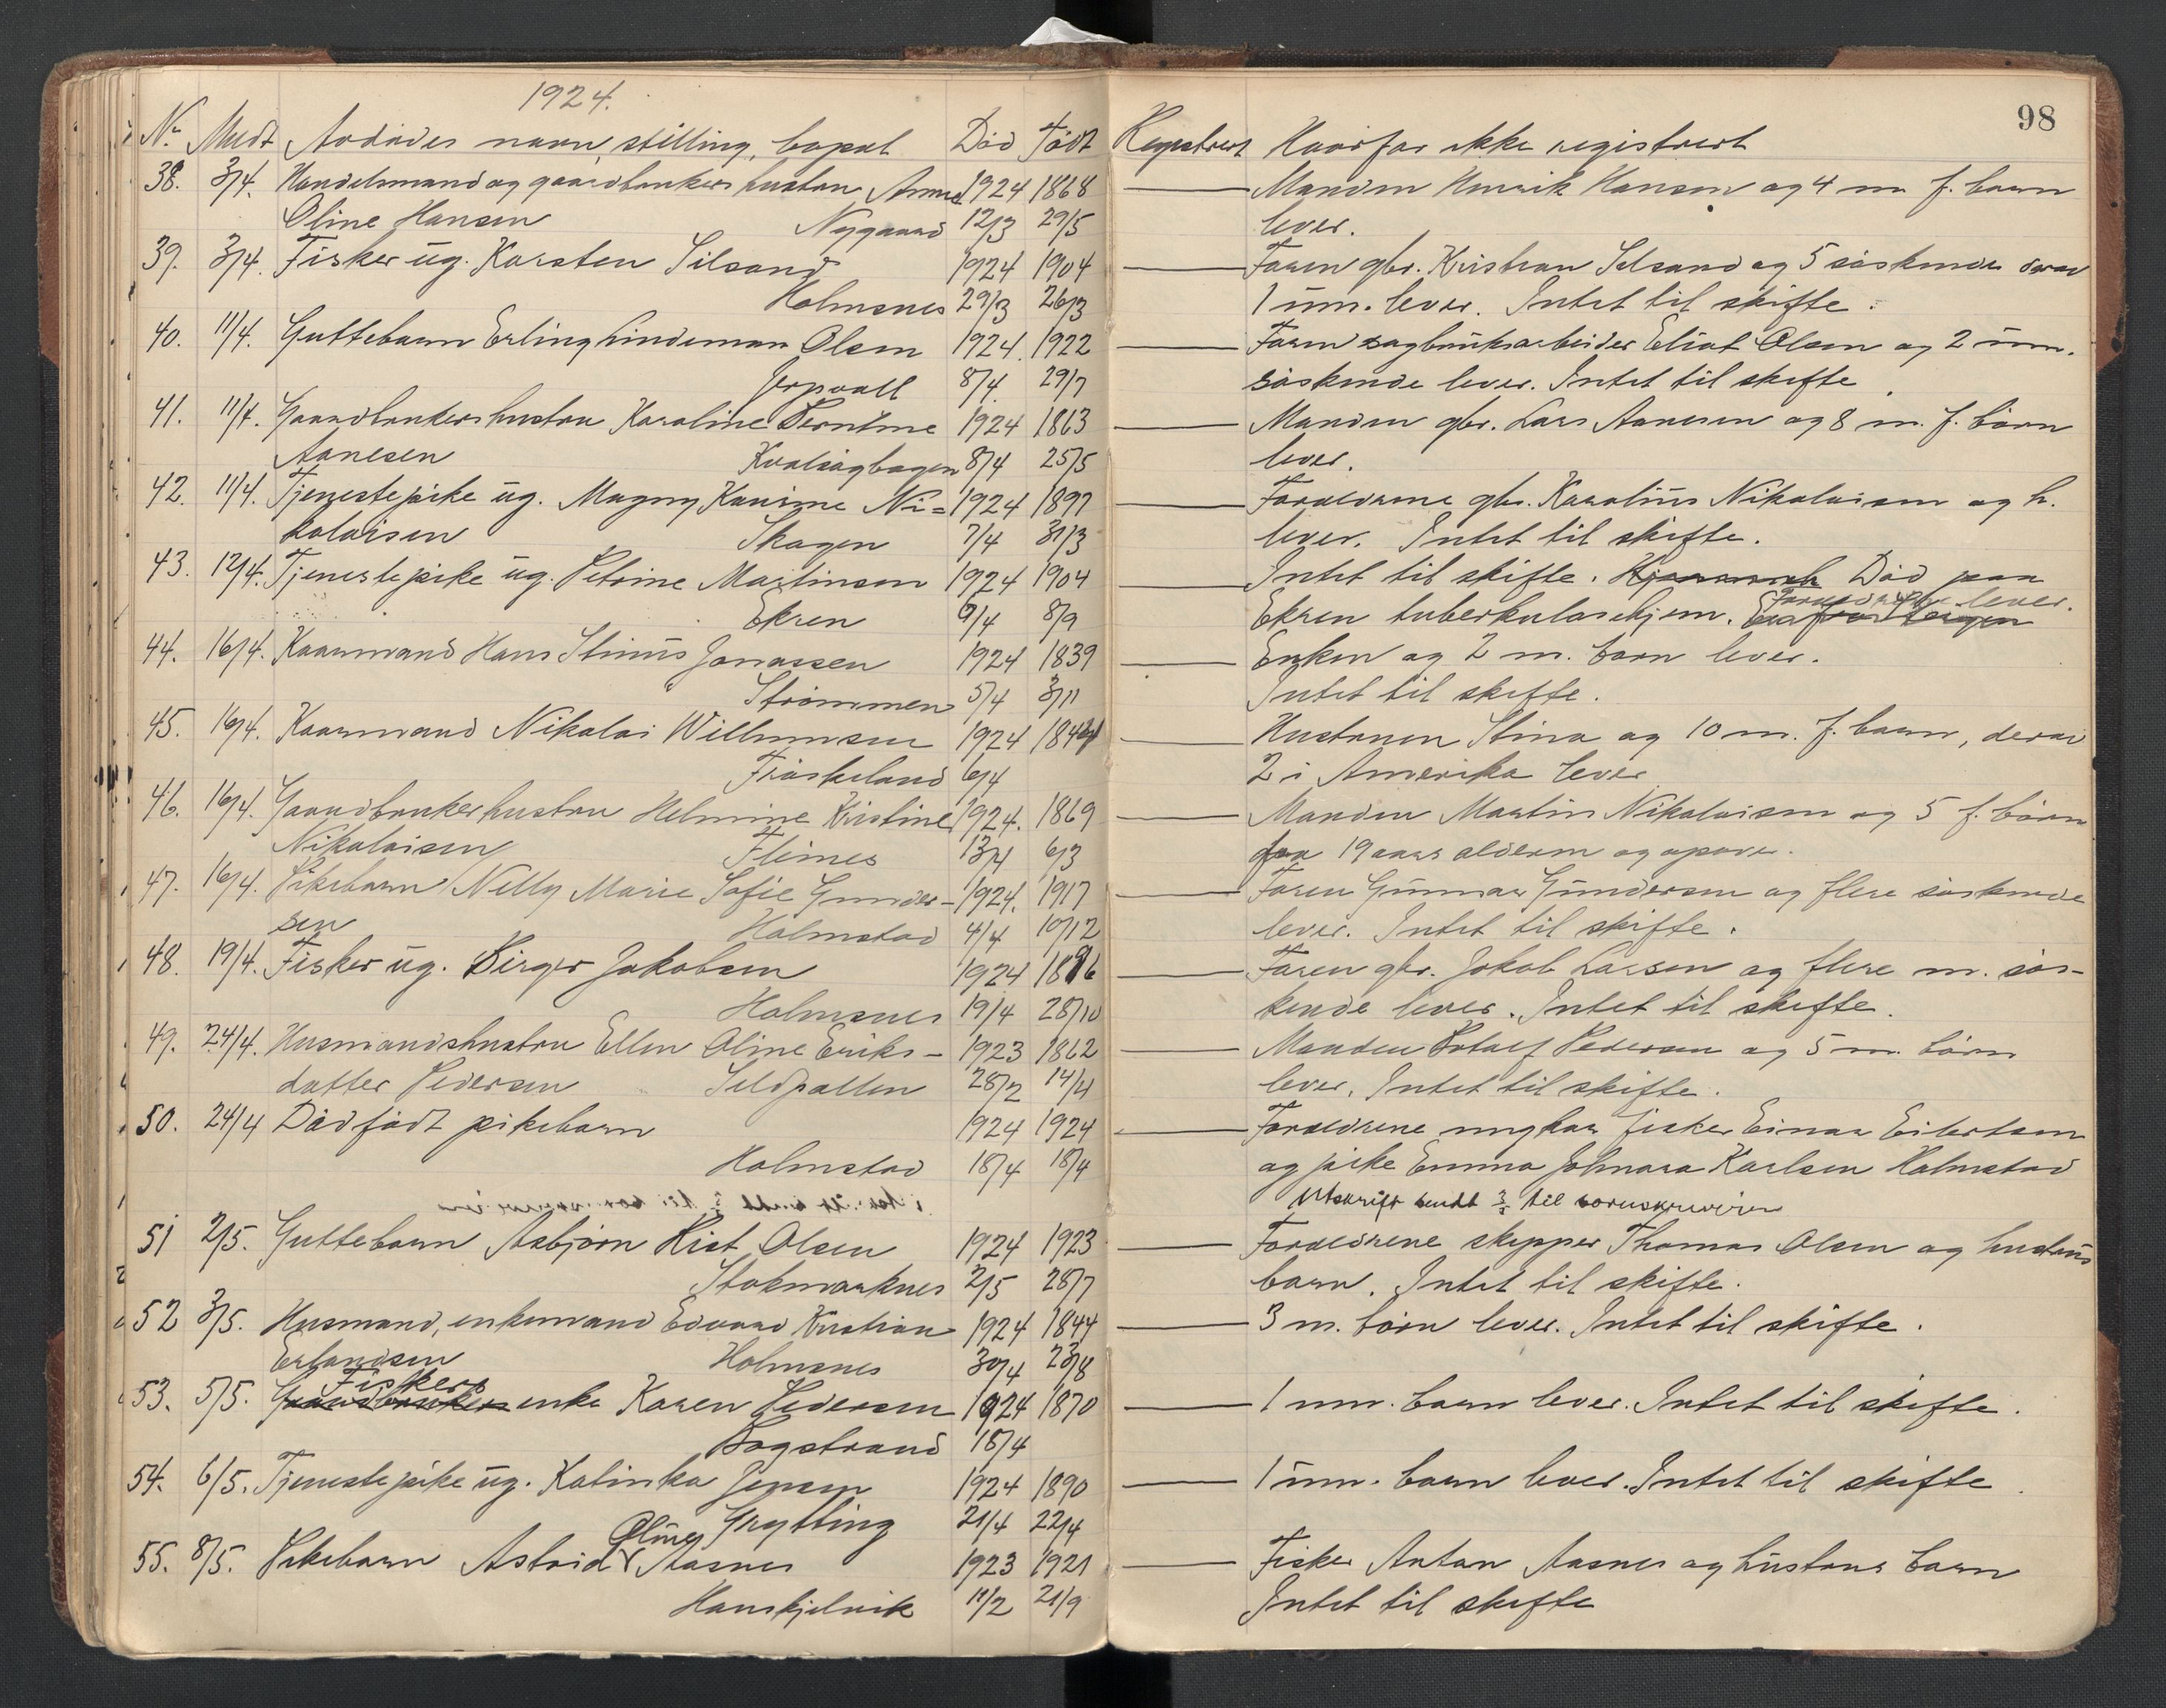 1924.
98
Nr. Meldt Avdødes navn, stilling, bopæl Død Født Registrert Hvorfor ikke registrert
38. 3/4. Handelsmand og gaardbrukers hustru Anna 1924 1868 Manden Henrik Hansen og 4 m. f. barn
Oline Hansen Nygaard 12/3 29/5 lever.
39. 3/4. Fisker ug. Karsten Silsand 1924 1904 Faren gbr. Kristian Silsand og 5 søskende derav
Holmsnes 29/3 26/3 1 um. lever. Intet til skifte.
40. 11/4. Guttebarn Erling Lindeman Olsen 1924. 1922 Faren sagbruksarbeider Eliot Olsen og 2 um.
Jerpvall 8/4. 29/7 søskende lever. Intet til skifte.
41. 11/4. Gaardbrukers hustru Karoline Berntine 1924 1863 Manden gbr. Lars Aanesen og 8 m. f. børn
Aanesen Kvalsøgbogen 8/4 25/5 lever.
42. 11/4. Tjenestepike ug. Magny Kaurine Ni= 1924 1897 Forældrene gbr. Karolius Nikolaisen og h.
kolaisen Skagen 7/4 31/3 lever. Intet til skifte.
43. 12/4. Tjenestepike ug. Petrine Martinsen 1924 1904 Intet til skifte. Død paa
Ekren 9/4 8/9 Ekren tuberkulosehjem. Forældrene lever.
44. 16/4. Kaarmand Hans Stinius Jonassen 1924 1839 Enken og 2 m. barn lever.
Strømmen 5/4 3/11 Intet til skifte.
45. 16/4. Kaarmand Nikolai Willumsen 1924 1844 Hustruen Stina og 10 m. f. barn, derav
Frøskeland 6/4 2 i Amerika lever
46. 16/4. Gaardbrukerhustru Helmine Kristine 1924. 1869 Manden Martin Nikolaisen og 5 f. børn
Nikolaisen Fleines 13/4 6/3 fra 19 aars alderen og opover.
47. 16/4. Pikebarn Nelly Marie Sofie Gunder- 1924. 1917 Faren Gunnar Gundersen og flere søskende
sen Holmstad 4/4 10/12 lever. Intet til skifte.
48. 19/4. Fisker ug. Birger Jakobsen 1924 1886 Faren gbr. Jakob Larsen og flere m. søs-
Holmsnes 19/4 28/10 kende lever. Intet til skifte.
49. 24/4. Husmandshustru Ellen Oline Eriks- 1923 1862 Manden Rolaf Pedersen og 5 m. børn
datter Pedersen Sildpollen 28/2 14/4 lever. Intet til skifte.
50. 24/4 Dødfødt pikebarn 1924 1924 Forældrene ungkar fisker Einar Eilertsen
Holmstad 18/4 18/4 og pike Emma Johnara Karlsen Holmstad
Utskrift sendt 3/5 til sorenskriveren
51 2/5. Guttebarn Asbjørn Kist Olsen 1924 1923 Forældrene skipper Thomas Olsen og hustrus
Stokmarknes 2/5 28/7 barn. Intet til skifte.
52 3/5. Husmand, enkemand Edvard Kristian 1924 1844 3 m. børn lever. Intet til skifte.
Erlandsen Holmsnes 30/4 23/8
Fiskers
53. 5/5. Gaardbrukers enke Karen Pedersen 1924 1870 1 um. barn lever. Intet til skifte.
Sogstrand 18/4
54. 6/5. Tjenestepike ug. Katinka Jensen 1924 1890 1 um. barn lever. Intet til skifte.
Grytting 21/4 22/4
Oline
55. 8/5. Pikebarn Astrid Aasnes 1923 1921 Fisker Anton Aasnes og hustrus barn
Hanskjelvik 11/2 21/9 Intet til skifte